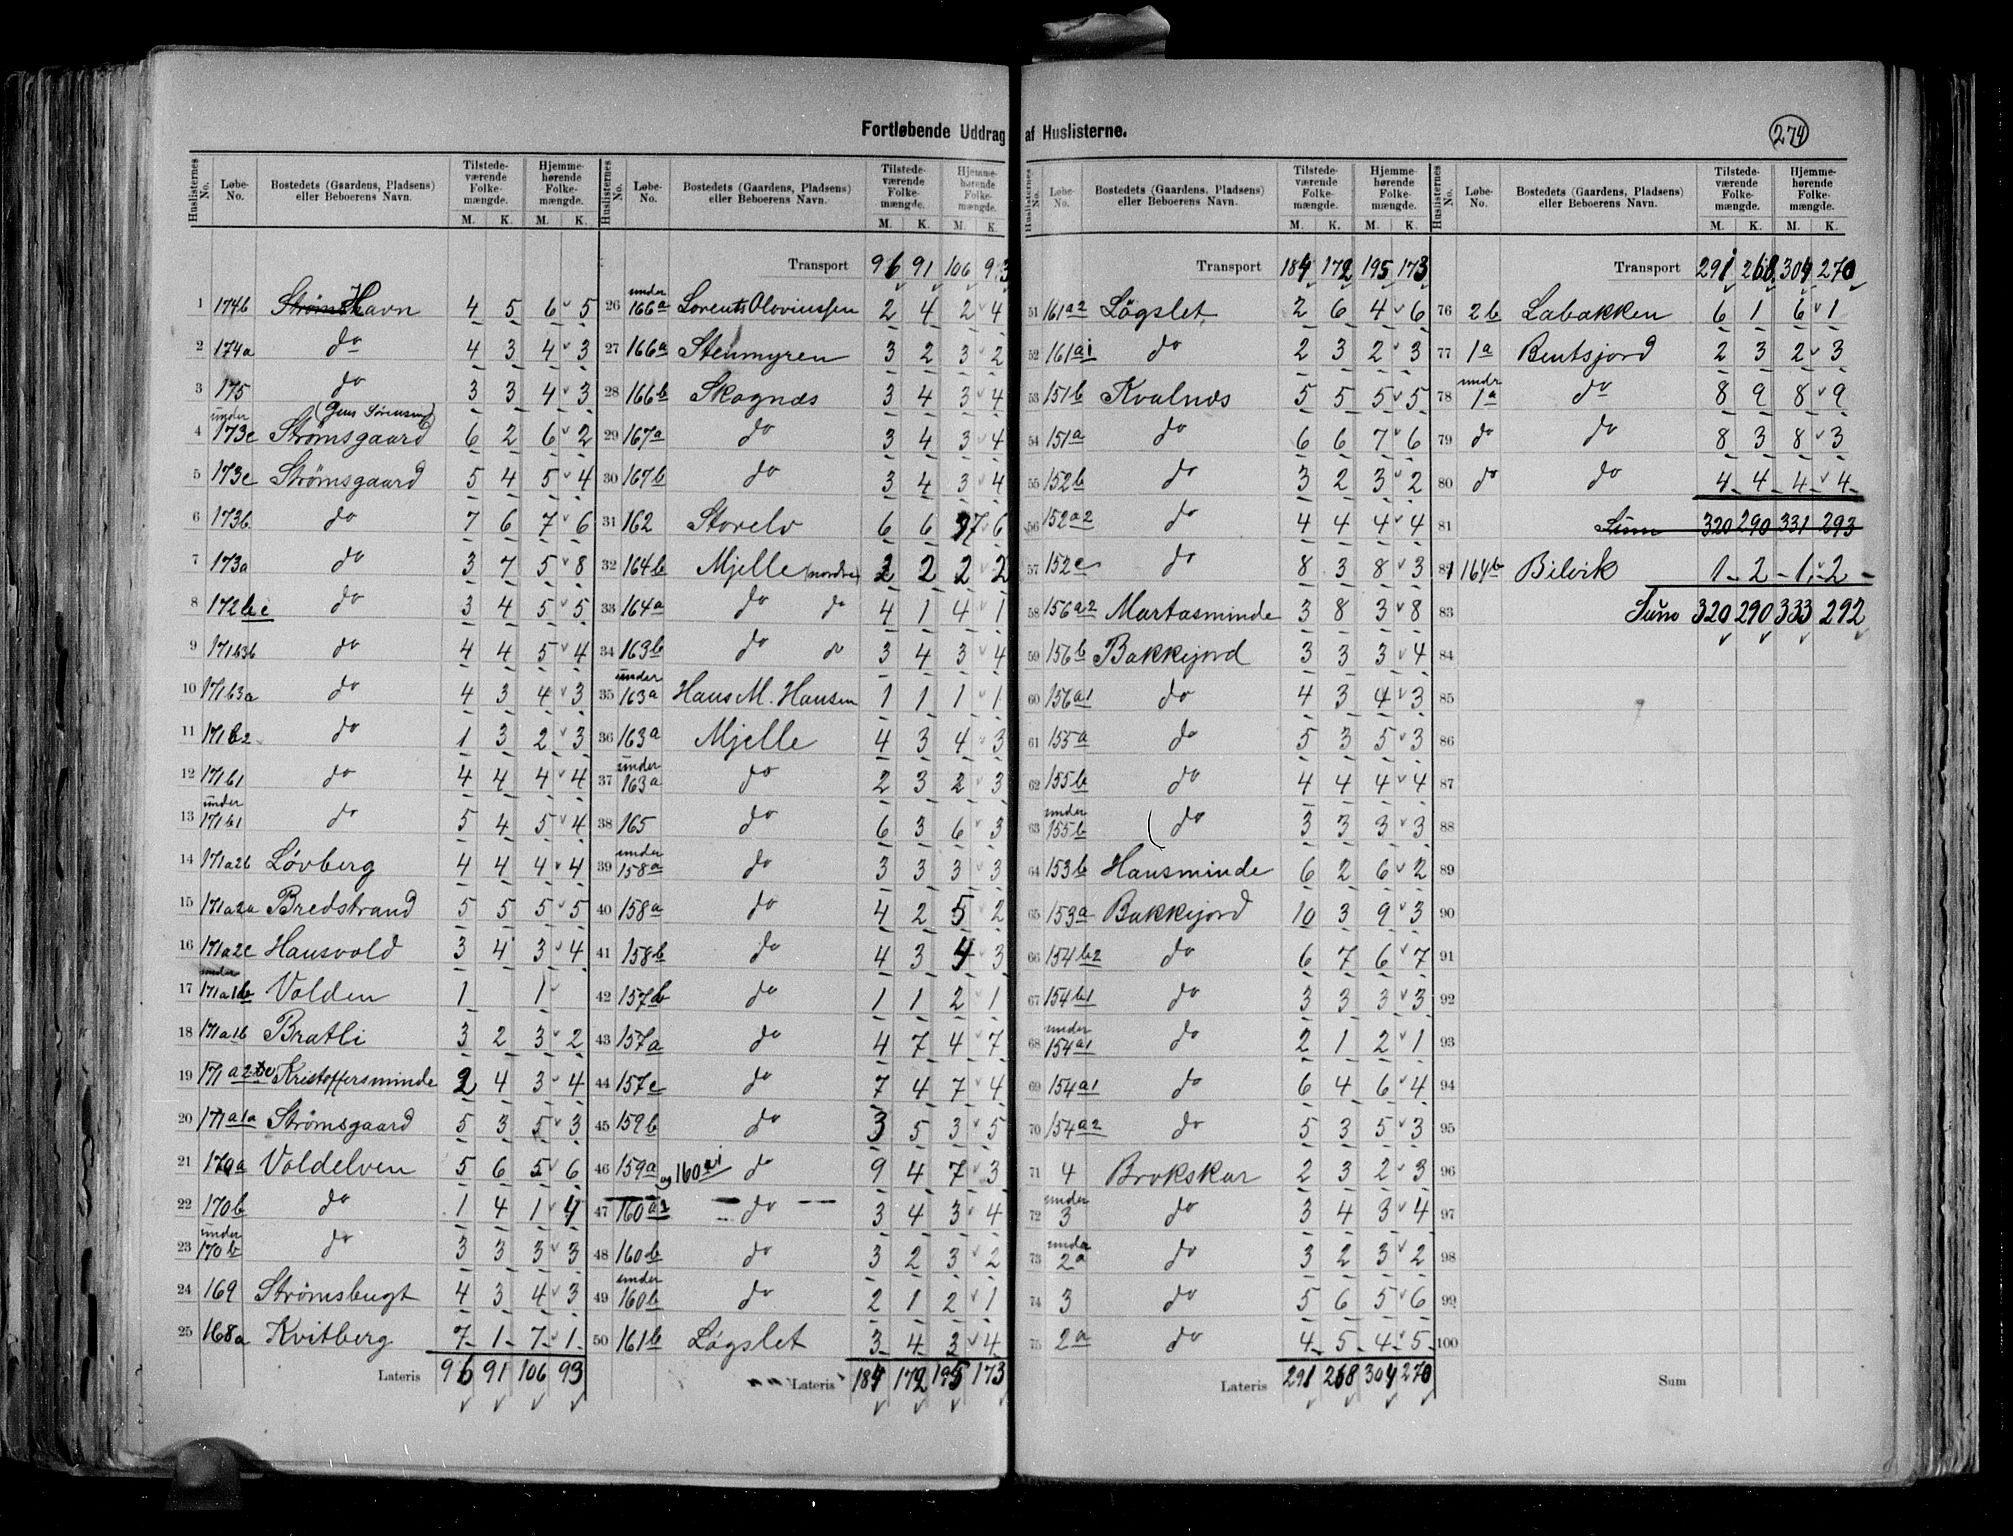 Fortløbende Uddrag af Huslisterne.
274
Huslisternes No. | Løbe-No. | Bostedets (Gaardens, Pladsens) eller Beboerens Navn. | Tilstedeværende Folkemængde. M. K. | Hjemmehørende Folkemængde. M. K.
1 174b Havn 4 5 6 5
2 174a do 4 3 4 3
3 175 do 3 3 4 3
4 under 173c Strømsgaard 6 2 6 2
5 173c Strømsgaard 5 4 5 4
6 173b do 7 6 7 6
7 173a do 3 7 5 8
8 172b c do 3 4 5 5
9 171b3b do 4 4 5 4
10 171b3a do 4 3 4 3
11 171b2 do 1 3 2 3
12 171b1 do 4 4 4 4
13 under 171b1 do 5 4 5 4
14 171a2b Løvberg 4 4 4 4
15 171a2a Bredstrand 5 5 5 5
16 171a2c Hansvold 3 4 3 4
17 under 171a1b Volden 1 1
18 171a1b Bratli 3 2 3 2
19 171a2 Kristoffersminde 2 4 3 4
20 171a1a Strømsgaard 5 3 5 3
21 170a Voldelven 5 6 5 6
22 170b do 1 4 1 4
23 under 170b do 3 3 3 3
24 169 Strømsbugt 4 3 4 3
25 168a Kvitberg 7 1 7 1
Lateris 96 91 106 93
Huslisternes No. | Løbe-No. | Bostedets (Gaardens, Pladsens) eller Beboerens Navn. | Tilstedeværende Folkemængde. M. K. | Hjemmehørende Folkemængde. M. K.
Transport 96 91 106 93
26 under 166a Lorents Olovinssen 2 4 2 4
27 166a Stenmyren 3 2 3 2
28 166b Skognæs 3 4 3 4
29 167a do 3 4 3 4
30 167b do 3 4 3 4
31 162 Storelv 6 6 7 6
32 164b Mjelle (nordre) 2 2 2 2
33 164a do do 4 1 4 1
34 163b do do 3 4 3 4
35 under 163a Hans M. Hansen 1 1 1 1
36 163a Mjelle 4 3 4 3
37 under 163a do 2 3 2 3
38 165 do 6 3 6 3
39 under 158a do 3 3 3 3
40 158a do 4 2 5 2
41 158b do 4 3 4 3
42 157b do 1 1 2 1
43 157a do 4 7 4 7
44 157c do 7 4 7 4
45 159b do 3 5 3 5
46 159a og 160a1 do 9 4 7 3
47 160a2 do 3 4 3 4
48 160b do 3 2 3 2
49 under 160b do 2 1 2 1
50 161b Løgslet 3 4 3 4
Lateris 184 172 195 173
Huslisternes No. | Løbe-No. | Bostedets (Gaardens, Pladsens) eller Beboerens Navn. | Tilstedeværende Folkemængde. M. K. | Hjemmehørende Folkemængde. M. K.
Transport 184 172 195 173
51 161a2 Løgslet 2 6 4 6
52 161a1 do 2 3 2 3
53 151b Kvalnæs 5 5 5 5
54 151a do 6 6 7 6
55 152b do 3 2 3 2
56 152a2 do 4 4 4 4
57 152c do 8 3 8 3
58 156a2 Martasminde 3 8 3 8
59 156b Bakkejord 3 3 3 4
60 156a1 do 4 3 4 3
61 155a do 5 3 5 3
62 155b do 4 4 4 4
63 under 155b do 3 3 3 3
64 153b Hansminde 6 2 6 2
65 153a Bakkejord 10 3 9 3
66 154b2 do 6 7 6 7
67 154b1 do 3 3 3 3
68 under 154a1 do 2 1 2 1
69 154a1 do 6 4 6 4
70 154a2 do 5 3 5 3
71 4 Brokskar 2 3 2 3
72 under 3 do 3 4 3 4
73 under 2a do 3 2 3 2
74 3 do 5 6 5 6
75 2a do 4 5 4 5
Lateris 291 268 304 270
Huslisternes No. | Løbe-No. | Bostedets (Gaardens, Pladsens) eller Beboerens Navn. | Tilstedeværende Folkemængde. M. K. | Hjemmehørende Folkemængde. M. K.
Transport 291 268 304 270
76 2b Labakken 6 1 6 1
77 1a Bentsjord 2 3 2 3
78 under 1a do 8 9 8 9
79 do do 8 3 8 3
80 do do 4 4 4 4
81 Sum 320 290 331 293
81 164b Bilvik 1 2 1 2
83 Sum 320 290 333 292
84
85
86
87
88
89
90
91
92
93
94
95
96
97
98
99
100
Sum